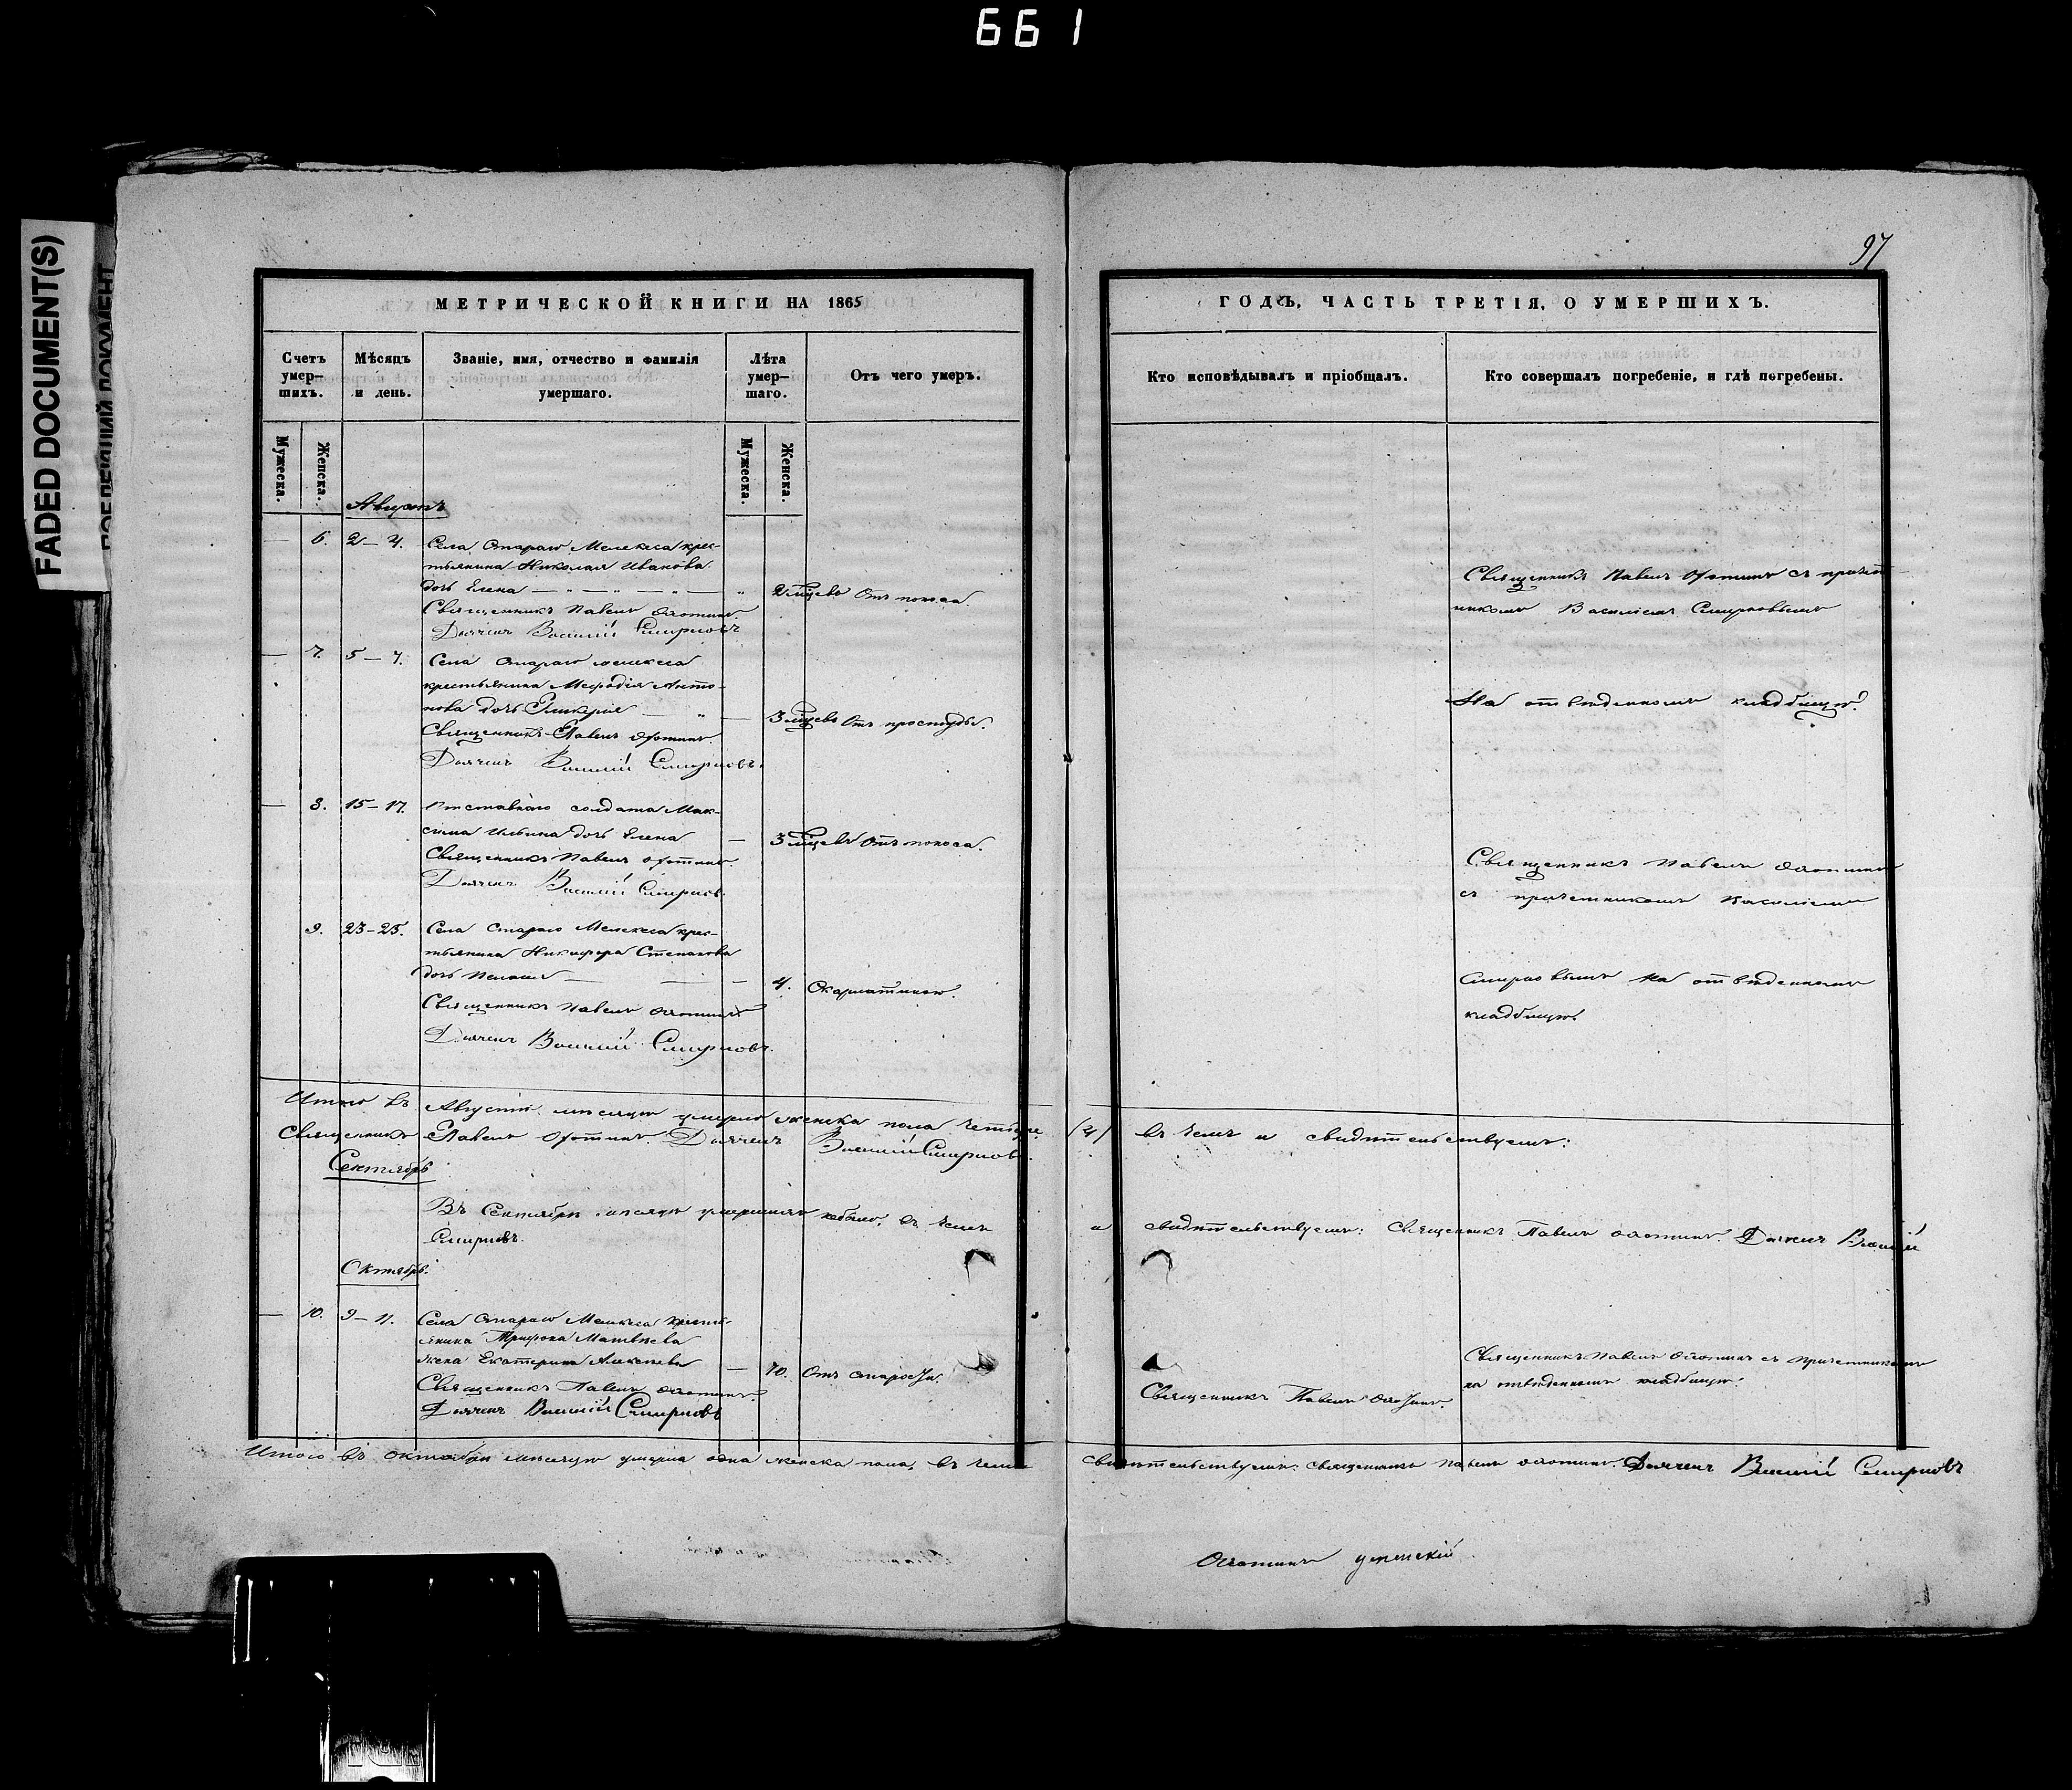 661
FADED DOCUMENT(S)
97
МЕТРИЧЕСКОЙ КНИГИ НА 1865
ГОДЪ, ЧАСТЬ ТРЕТІЯ, О УМЕРШИХЪ.
Счетъ умер-
шихъ.
Мѣсяцъ
и день.
Званіе, имя, отчество и фамилія
умершаго.
Лѣта
умер-
шаго.
Отъ чего умеръ.
Кто исповѣдывалъ и пріобщалъ.
Кто совершалъ погребеніе, и гдѣ погребены.
Мужеска.
Женска.
Мужеска.
Женска.
Августъ
6. 2–4. Села Стараго Мелекеса крес-
тьянина Николая Иванова
дочь Елена 2 мѣсцевъ Отъ поноса.
Священникъ Павелъ Охотинъ.
Дьячекъ Василій Смирновъ
Священникъ Павелъ Охотинъ съ причет-
никомъ Василіемъ Смирновымъ
7. 5–7. Села Стараго Мелекеса
крестьянина Мефодія Анто-
нова дочь Гликерія 3 мѣсцевъ Отъ простуды.
Священникъ Павелъ Охотинъ.
Дьячекъ Василій Смирновъ.
На отведенномъ кладбищѣ.
8. 15–17. Отставнаго солдата Мак-
сима Ильина дочь Елена 3 мѣсцевъ Отъ поноса.
Священникъ Павелъ Охотинъ.
Дьячекъ Василій Смирновъ.
Священникъ Павелъ Охотинъ
съ причетникомъ Василіемъ
9. 23–25. Села Стараго Мелекеса крес-
тьянина Никифора Степанова
дочь 4. Скарлатиною.
Священникъ Павелъ Охотинъ
Дьячекъ Василій Смирновъ.
Смирновымъ на отведенномъ
кладбищѣ.
Итого въ Августѣ мѣсяцѣ умерло женска пола четыре (4) въ чемъ и свидѣтельствуемъ:
Священникъ Павелъ Охотинъ. Дьячекъ Василій Смирновъ.
Сентябрь
Въ Сентябрѣ мѣсяцѣ умершихъ небыло, въ чемъ и свидѣтельствуемъ: Священникъ Павелъ Охотинъ. Дьячекъ Василій
Смирновъ.
Октябрь.
10. 9–11. Села Стараго Мелекеса кресть-
янина Трифона Матвѣева
жена Екатерина Алексѣева 70. Отъ старости.
Священникъ Павелъ Охотинъ.
Дьячекъ Василій Смирновъ
Священникъ Павелъ Охотинъ.
Священникъ Павелъ Охотинъ съ причетникомъ
на отведенномъ кладбищѣ.
Итого въ октябрѣ мѣсяцѣ умерла одна женска пола, въ чемъ свидѣтельствуемъ: Священникъ Павелъ Охотинъ. Дьячекъ Василій Смирновъ
Охотинъ